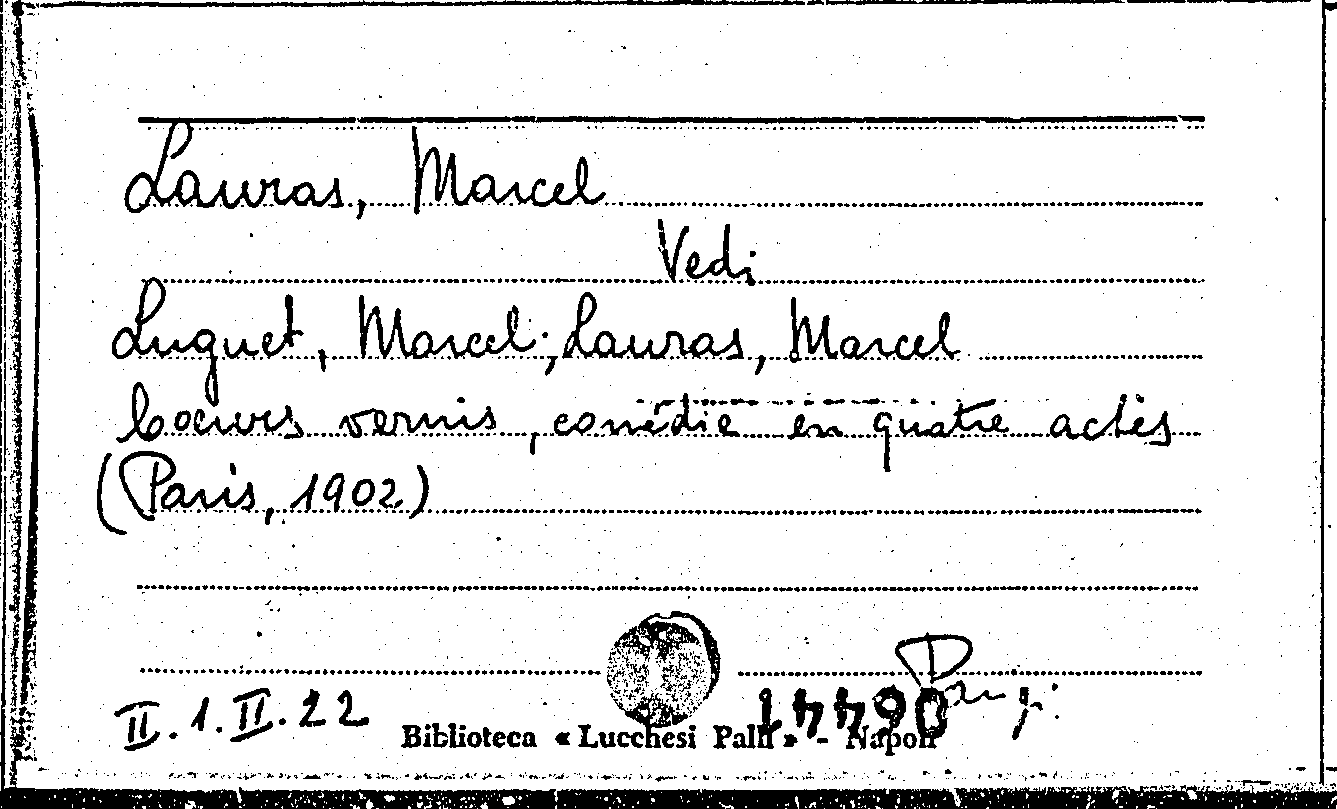 Lauras, Marcel
Vedi
Luguet, Marcel; Lauras, Marcel
Coeurs vernis, comédie en quatre actes
(Paris, 1902)
II.1.II.22
Biblioteca « Lucchesi Palli » - Napoli